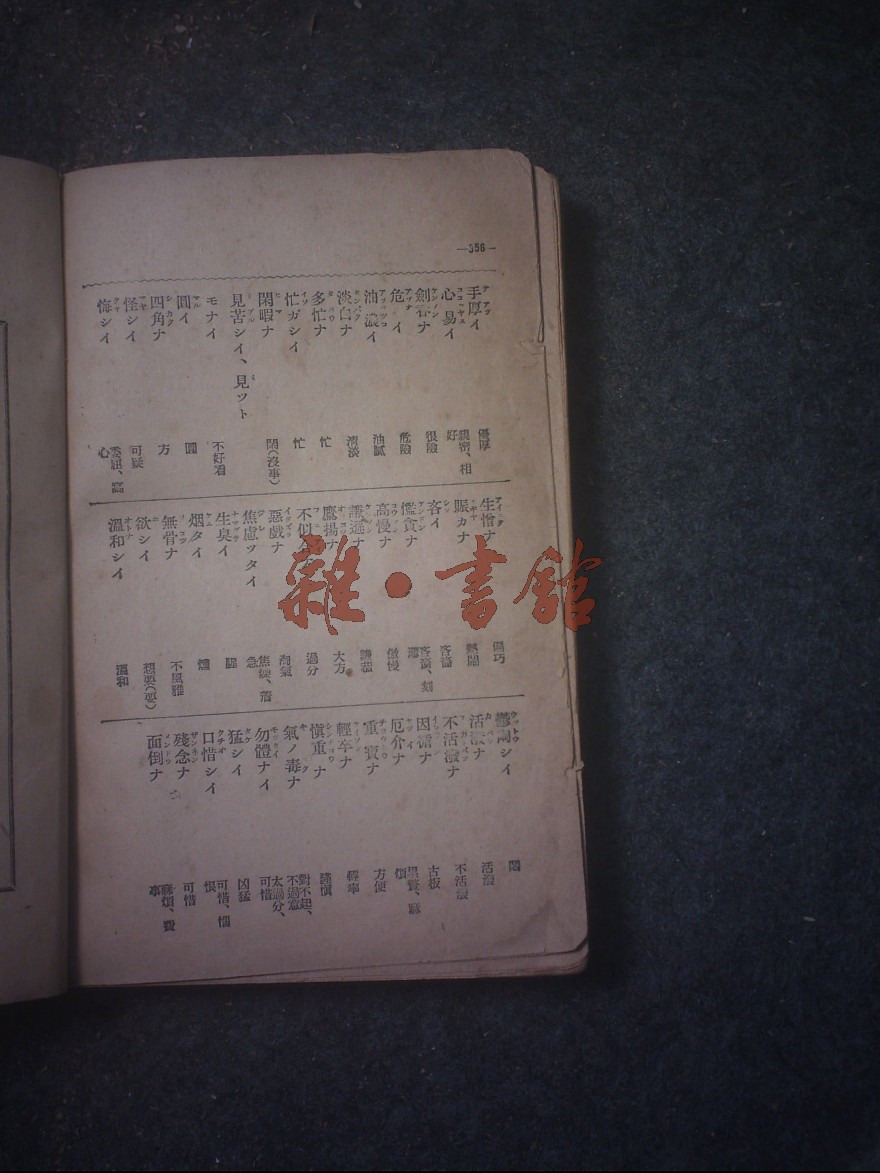 —356—
手厚イ 優厚
心易イ 親密、相好
劍呑ナ 很險
危イ 危險
油濃イ 油膩
淡白ナ 清淡
多忙ナ 忙
忙ガシイ 忙
閑暇ナ 閑(沒事)
見苦シイ、見ツトモナイ 不好看
圓イ 圓
四角ナ 方
怪シイ 可疑
悔シイ 心
生憎ナ 偏巧
賑カナ 熱鬧
客イ 吝嗇
慳貪ナ 吝嗇、刻薄
高慢ナ 傲慢
謙遜ナ 謙恭
鷹揚ナ 大方
不似合ナ 過分
惡戲ナ 淘氣
焦慮ツタイ 焦燥、着急
生臭イ 腥
烟タイ 燻
無骨ナ 不風雅
欲シイ 想要(要)
溫和シイ 溫和
鬱陶シイ 悶
活潑ナ 活潑
不活潑ナ 不活潑
因循ナ 古板
厄介ナ 累贅、麻煩
重寶ナ 方便
輕卒ナ 輕率
愼重ナ 謹愼
氣ノ毒ナ 對不起、不過意
勿體ナイ 太過分、可惜
猛シイ 凶猛
口惜シイ 可惜、惱恨
殘念ナ 可惜
面倒ナ 麻煩、費事
雜·書館